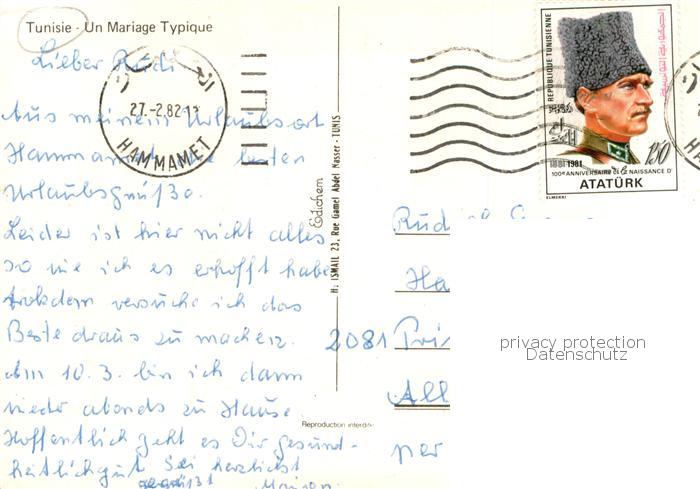 Tunisie - Un Mariage Typique
Lieber Rudi
27.-2.82
HAMMAMET
Aus meinem Urlaubsort
Hammamet die besten
Urlaubsgrüße.
Leider ist hier nicht alles
so wie ich es erhofft habe
trotzdem versuche ich das
Beste draus zu machen.
Am 10.3. bin ich dann
wieder abends zu Hause
Hoffentlich geht es Dir gesund-
heitlich gut Sei herzlichst
gegrüßt
H. ISMAIL 23, Rue Gamel Abdel Nasser - TUNIS
Reproduction interdite
REPUBLIQUE TUNISIENNE
الجمهورية التونسية
1881-1981
150
100e ANNIVERSAIRE DE LA NAISSANCE D'
ATATÜRK
ELMEKKI
Ha
2081
All
per
privacy protection
Datenschutz